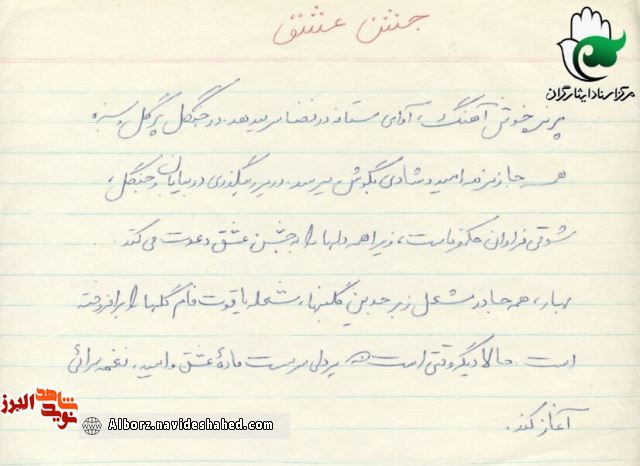 جشن عشق
مرکز اسناد ایثارگران
پرنده خوش آهنگ، آوای مستانه در فضا سر میدهد. در جنگل پر گل و سبزه
همه جا زمزمه امید و شادی بگوش میرسد. در هر رهگذری در بیابان و جنگل،
شوقی فراوان حکمفرماست، زیرا همه دلها را به جشن عشق دعوت می کند
بهار، همه جا در مشعل زبرجدین گلبنها، شعله یاقوت فام گلها را برافروخته
است. حالا دیگر وقتی است که هر دلی سرمست بادهٔ عشق و امید، نغمه سرائی
آغاز کند.
نوید شاهد البرز
Alborz.navideshahed.com